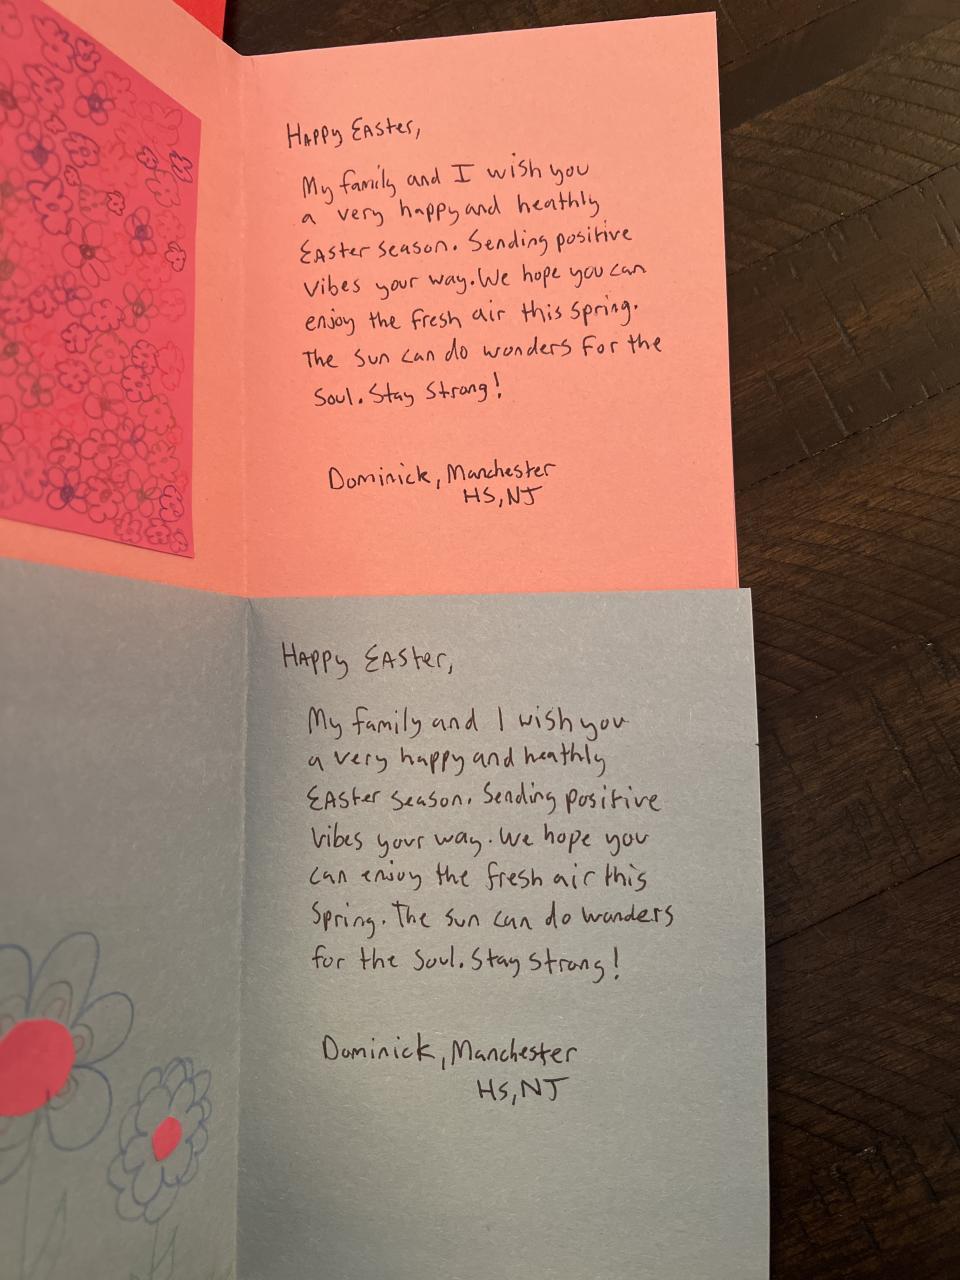 Happy Easter,
My family and I wish you
a very happy and heathly
Easter season. Sending positive
vibes your way. We hope you can
enjoy the fresh air this Spring.
The sun can do wonders for the
Soul. Stay Strong!
Dominick, Manchester
HS, NJ
Happy Easter,
My family and I wish you
a very happy and heathly
Easter season. Sending positive
vibes your way. We hope you
can enjoy the fresh air this
Spring. The sun can do wonders
for the Soul. Stay Strong!
Dominick, Manchester
HS, NJ